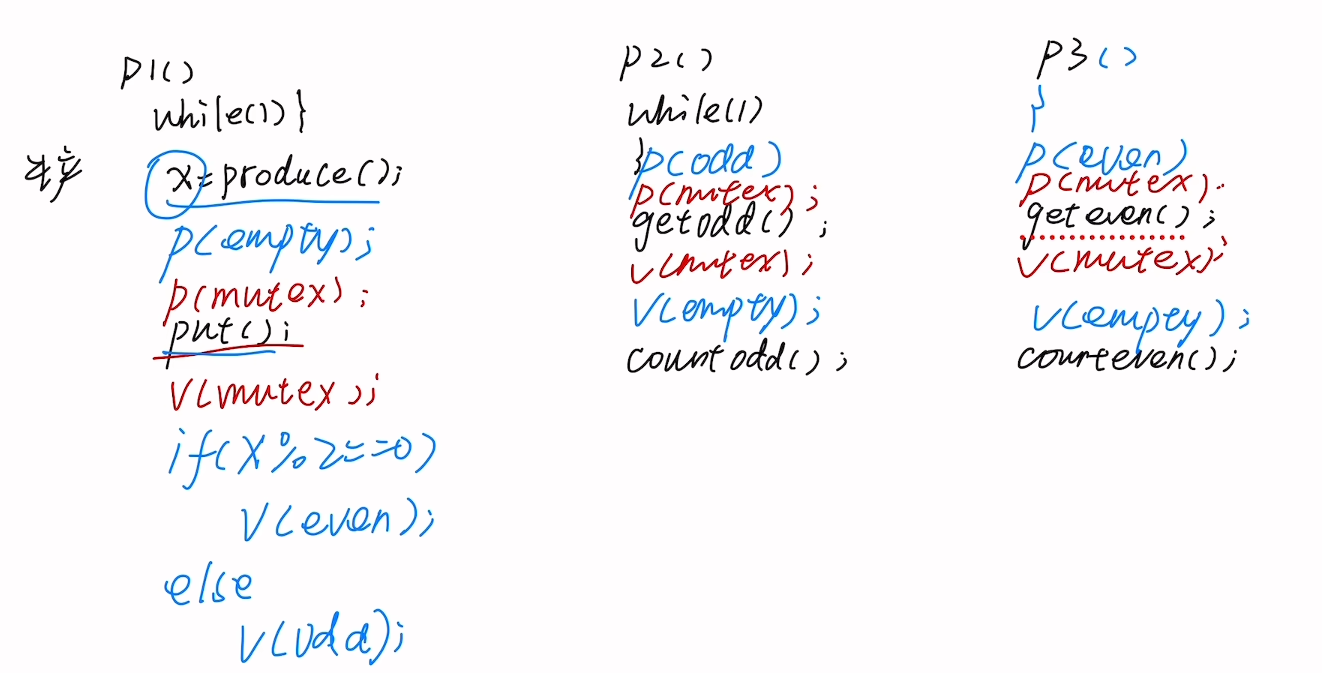 p1()
while(1)}
x=produce();
p(empty);
p(mutex);
put();
v(mutex);
if(x%2==0)
v(even);
else
v(odd);
p2()
while(1)
}p(odd)
p(mutex);
getodd();
v(mutex);
v(empty);
countodd();
p3()
}
p(even)
p(mutex).
geteven();
v(mutex);
v(empty);
counteven();